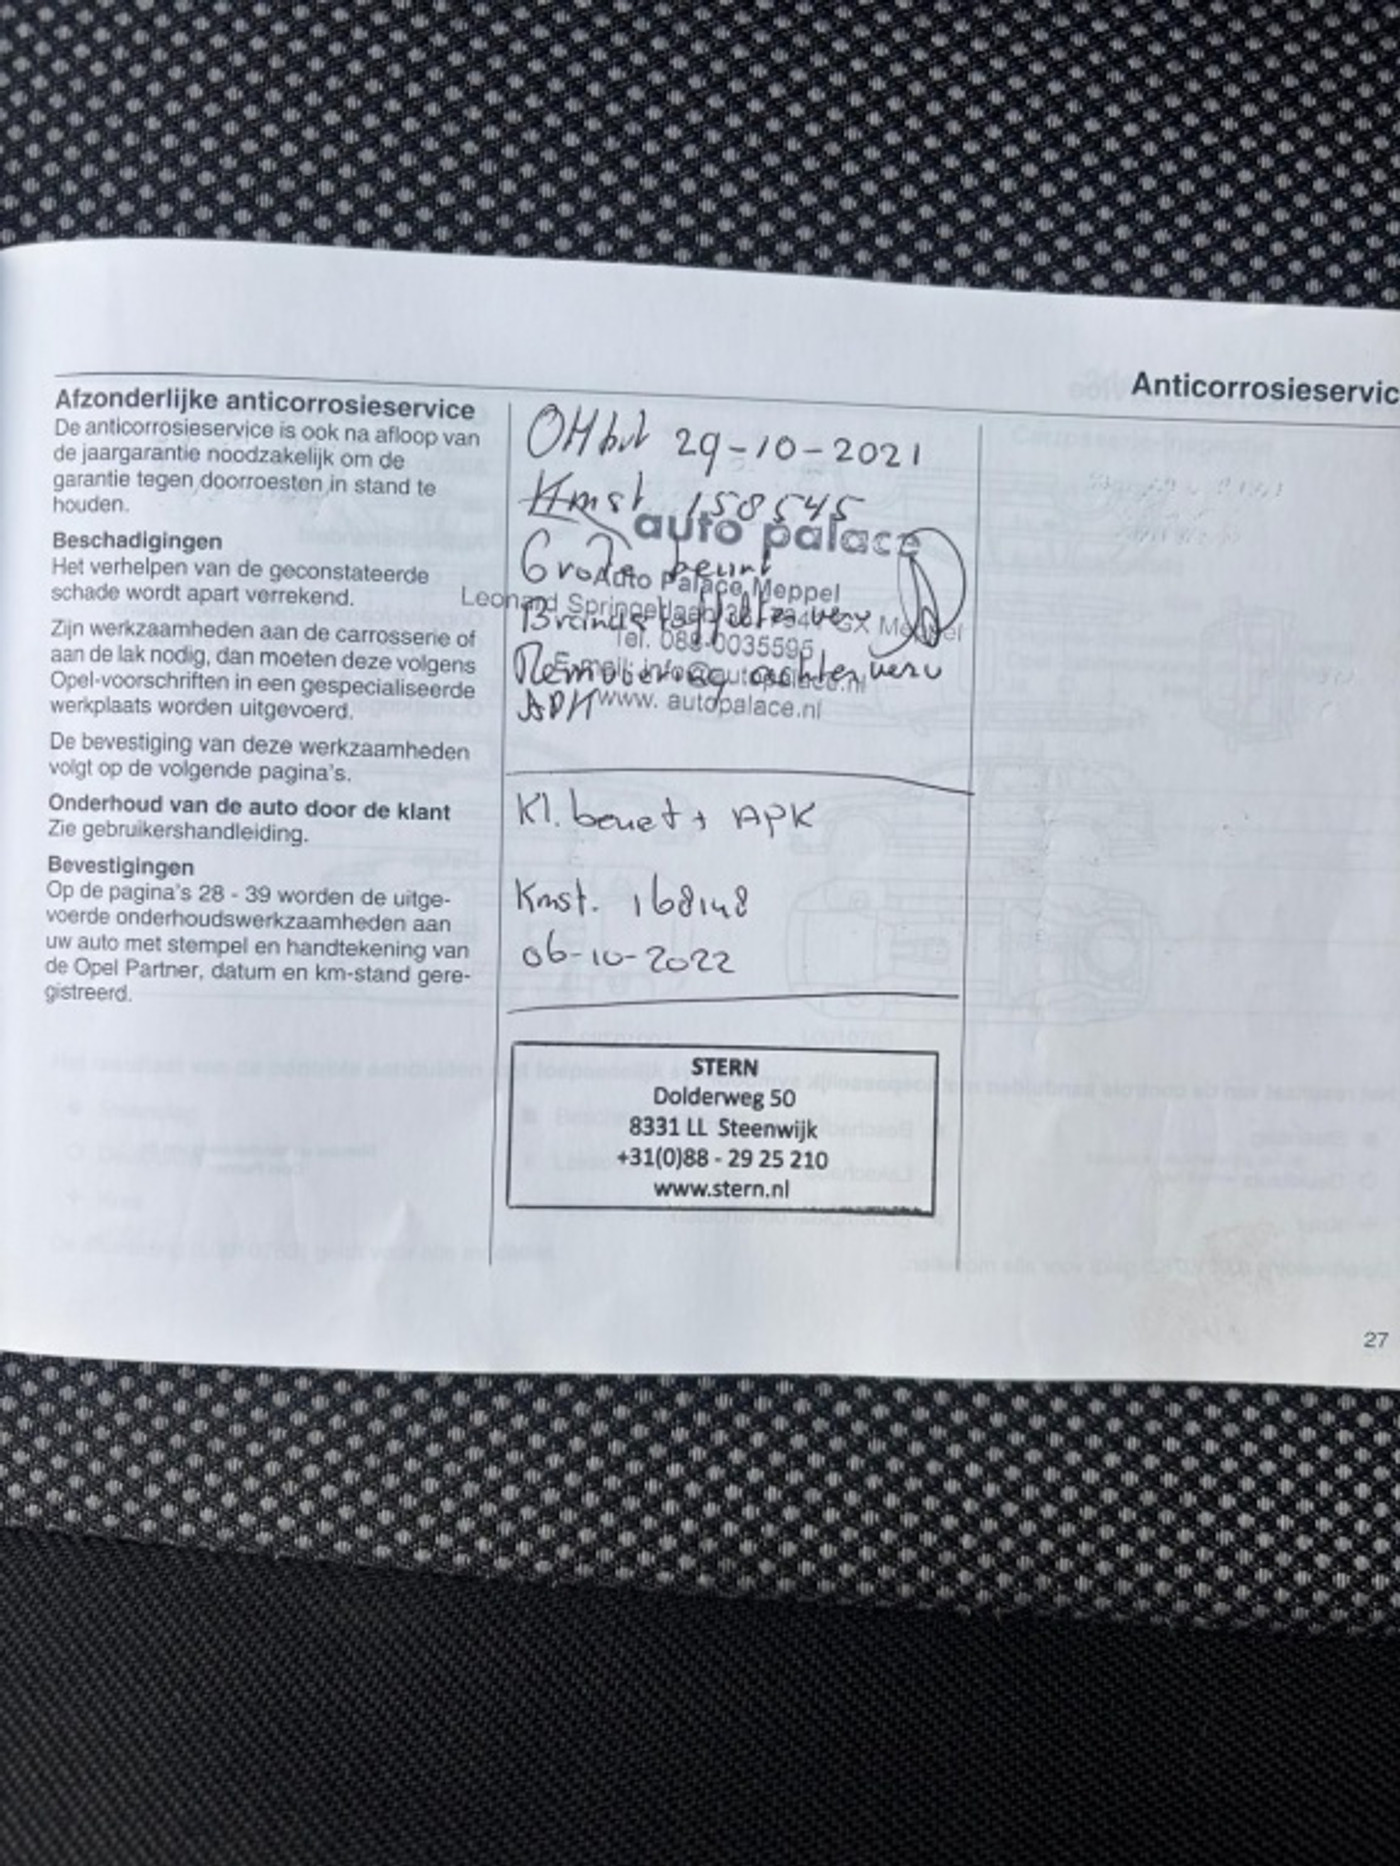 Anticorrosieservic
Afzonderlijke anticorrosieservice
De anticorrosieservice is ook na afloop van
de jaargarantie noodzakelijk om de
garantie tegen doorroesten in stand te
houden.
Beschadigingen
Het verhelpen van de geconstateerde
schade wordt apart verrekend.
Zijn werkzaamheden aan de carrosserie of
aan de lak nodig, dan moeten deze volgens
Opel-voorschriften in een gespecialiseerde
werkplaats worden uitgevoerd.
De bevestiging van deze werkzaamheden
volgt op de volgende pagina's.
Onderhoud van de auto door de klant
Zie gebruikershandleiding.
Bevestigingen
Op de pagina's 28 - 39 worden de uitge-
voerde onderhoudswerkzaamheden aan
uw auto met stempel en handtekening van
de Opel Partner, datum en km-stand gere-
gistreerd.
29-10-2021
Kmst 158545
auto palace
Grote beurt
Auto Palace Meppel
Leonard Springerlaan
Tel. 088-0035595
E-mail: info@autopalace.nl
Remvoering achter verv
APK
www. autopalace.nl
Kl. beurt + APK
Kmst. 168148
06-10-2022
STERN
Dolderweg 50
8331 LL Steenwijk
+31(0)88 - 29 25 210
www.stern.nl
27